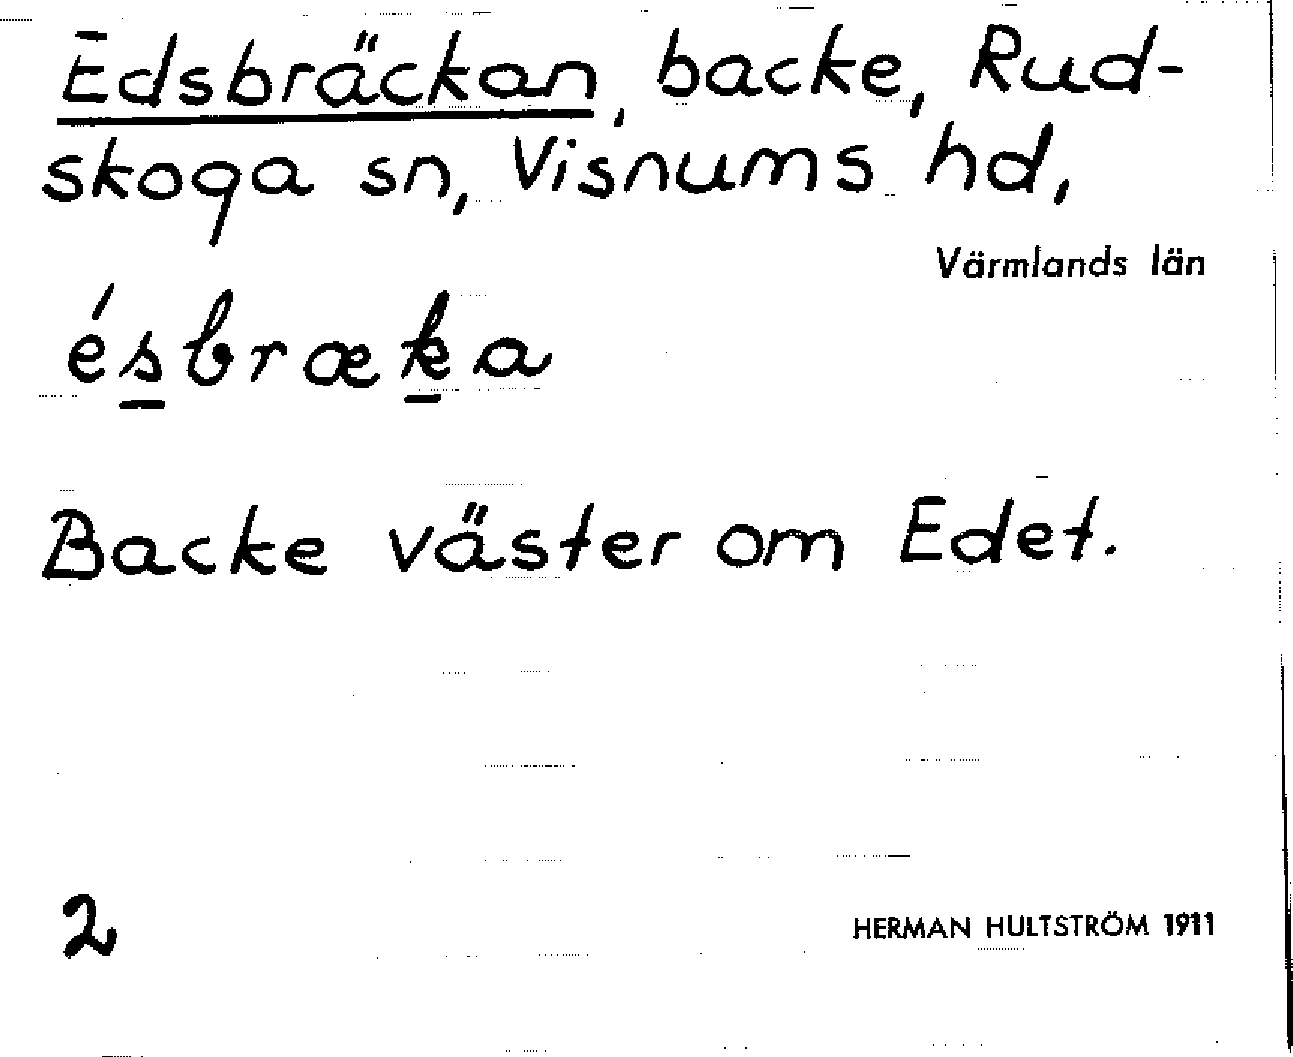 Edsbräckan, backe, Rud-
skoga sn, Visnums hd,
Värmlands län
ésbræka
Backe väster om Edet.
2
HERMAN HULTSTRÖM 1911